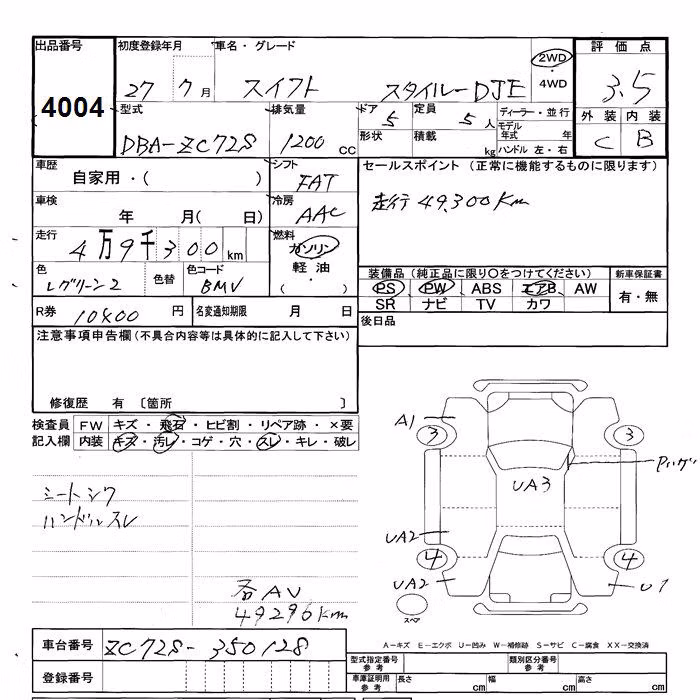 出品番号 初度登録年月 車名・グレード 2WD 評価点
4004 27 7月 スイフト スタイルーDJE ・4WD 3.5
型式 排気量 ドア 定員 ディーラー・並行 外装 内装
DBA-ZC72S 1200 cc 5 5人 モデル年式 年 C B
形状 積載 kg ハンドル 左・右
車歴 シフト セールスポイント (正常に機能するものに限ります)
自家用・( ) FAT
走行 49,300Km
車検 年 月( 日) 冷房 AAC
走行 4万9千300km 燃料 ガソリン
軽油
・( )
色 色替 色コード
Lグリーン2 BMV
装備品 (純正品に限り〇をつけてください) 新車保証書
PS PW ABS エアB AW 有・無
SR ナビ TV カワ
R券 10400 円 名変通知期限 月 日 後日品
注意事項申告欄 (不具合内容等は具体的に記入して下さい)
修復歴 有 〔箇所 〕
検査員 FW キズ・飛石・ヒビ割・リペア跡・×要
記入欄 内装 キズ・汚レ・コゲ・穴・スレ・キレ・破レ
シートシワ
ハンドルスレ
各AU
49296km
A1
3 3
Pハゲ
UA3
UA2
4 4
UA2 U1
スペア
車台番号 ZC72S-350128
登録番号
A-キズ E-エクボ U-凹み W-補修跡 S-サビ C-腐食 XX-交換済
型式指定番号 参考 類別区分番号 参考
車庫証明用 参考 長さ cm 幅 cm 高さ cm